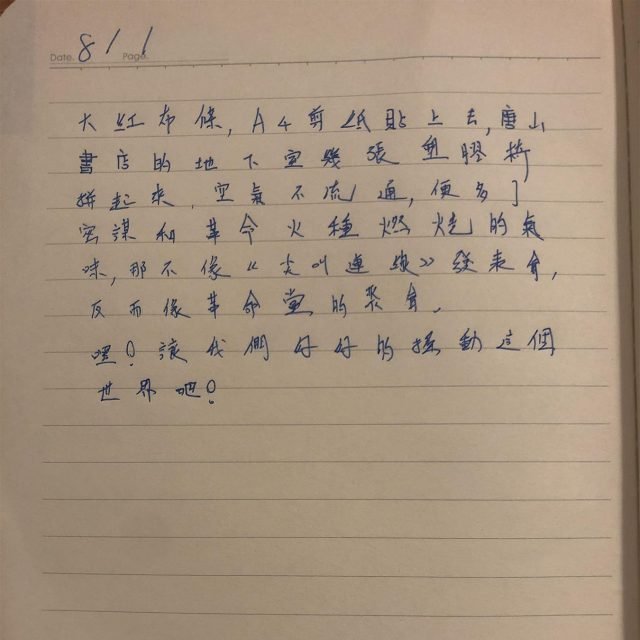 Date. 8/1 Page.
大紅布條,A4剪紙貼上去,唐山
書店的地下室幾張塑膠椅
拼起來,空氣不流通,便多了
密謀和革命火種燃燒的氣
味,那不像《尖叫連線》發表會,
反而像革命黨的聚會。
嘿!讓我們好好的搖動這個
世界吧!